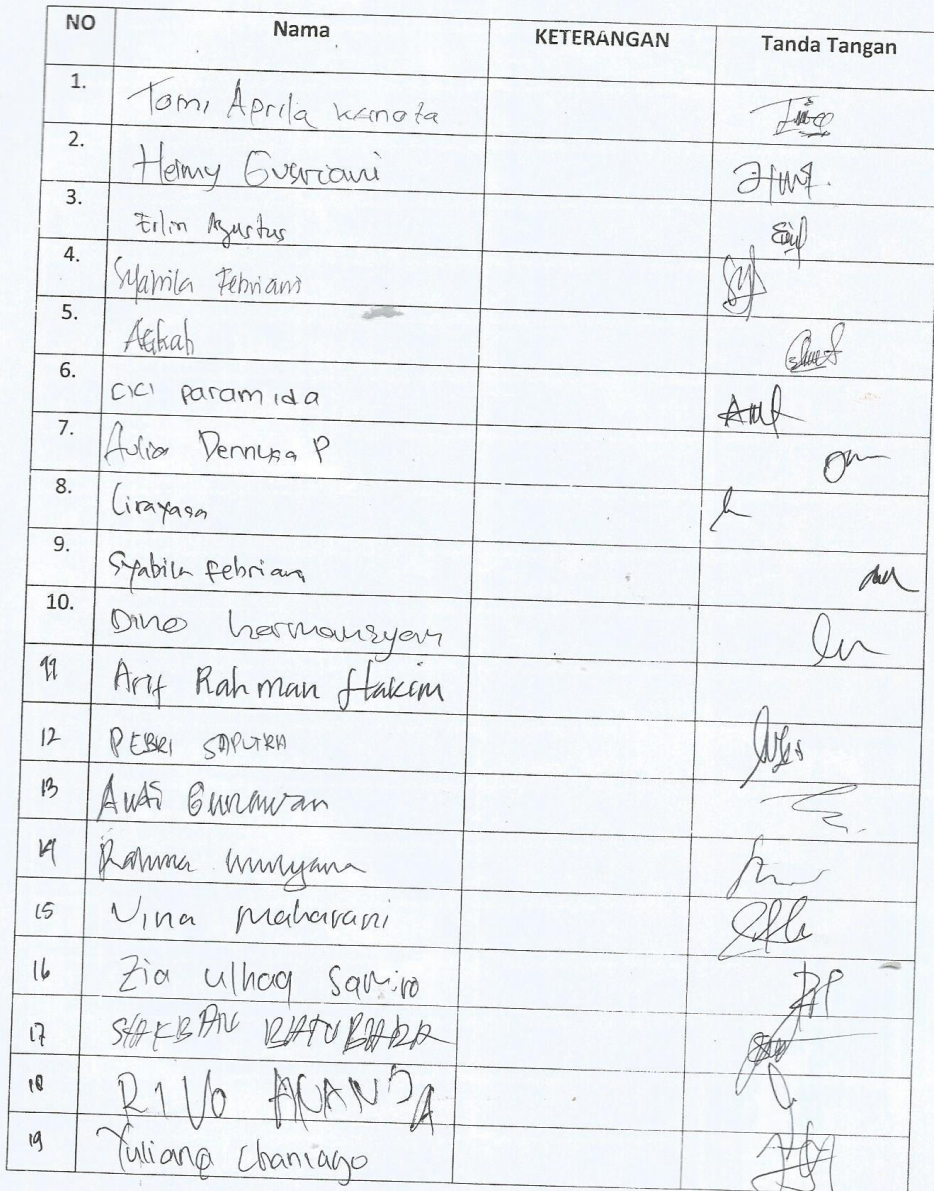 NO Nama KETERANGAN Tanda Tangan
1. Tomi Aprila kanata
2. Heimy Gusriani
3. Erlin Agustus
4. Syabila Febriani
5. Aefkah
6. cici paramida
7. Aulia P
8. Cirayasa
9. Syabila febriana
10. Dino hermansyah
11 Arif Rahman Hakim
12 PEBRI SAPUTRA
13 Gunawan
14 Rahma
15 Vina maharani
16 Zia Ulhaq Samiro
17 BATUBARA
18 RIVO ANANDA
19 Yuliana Chaniago